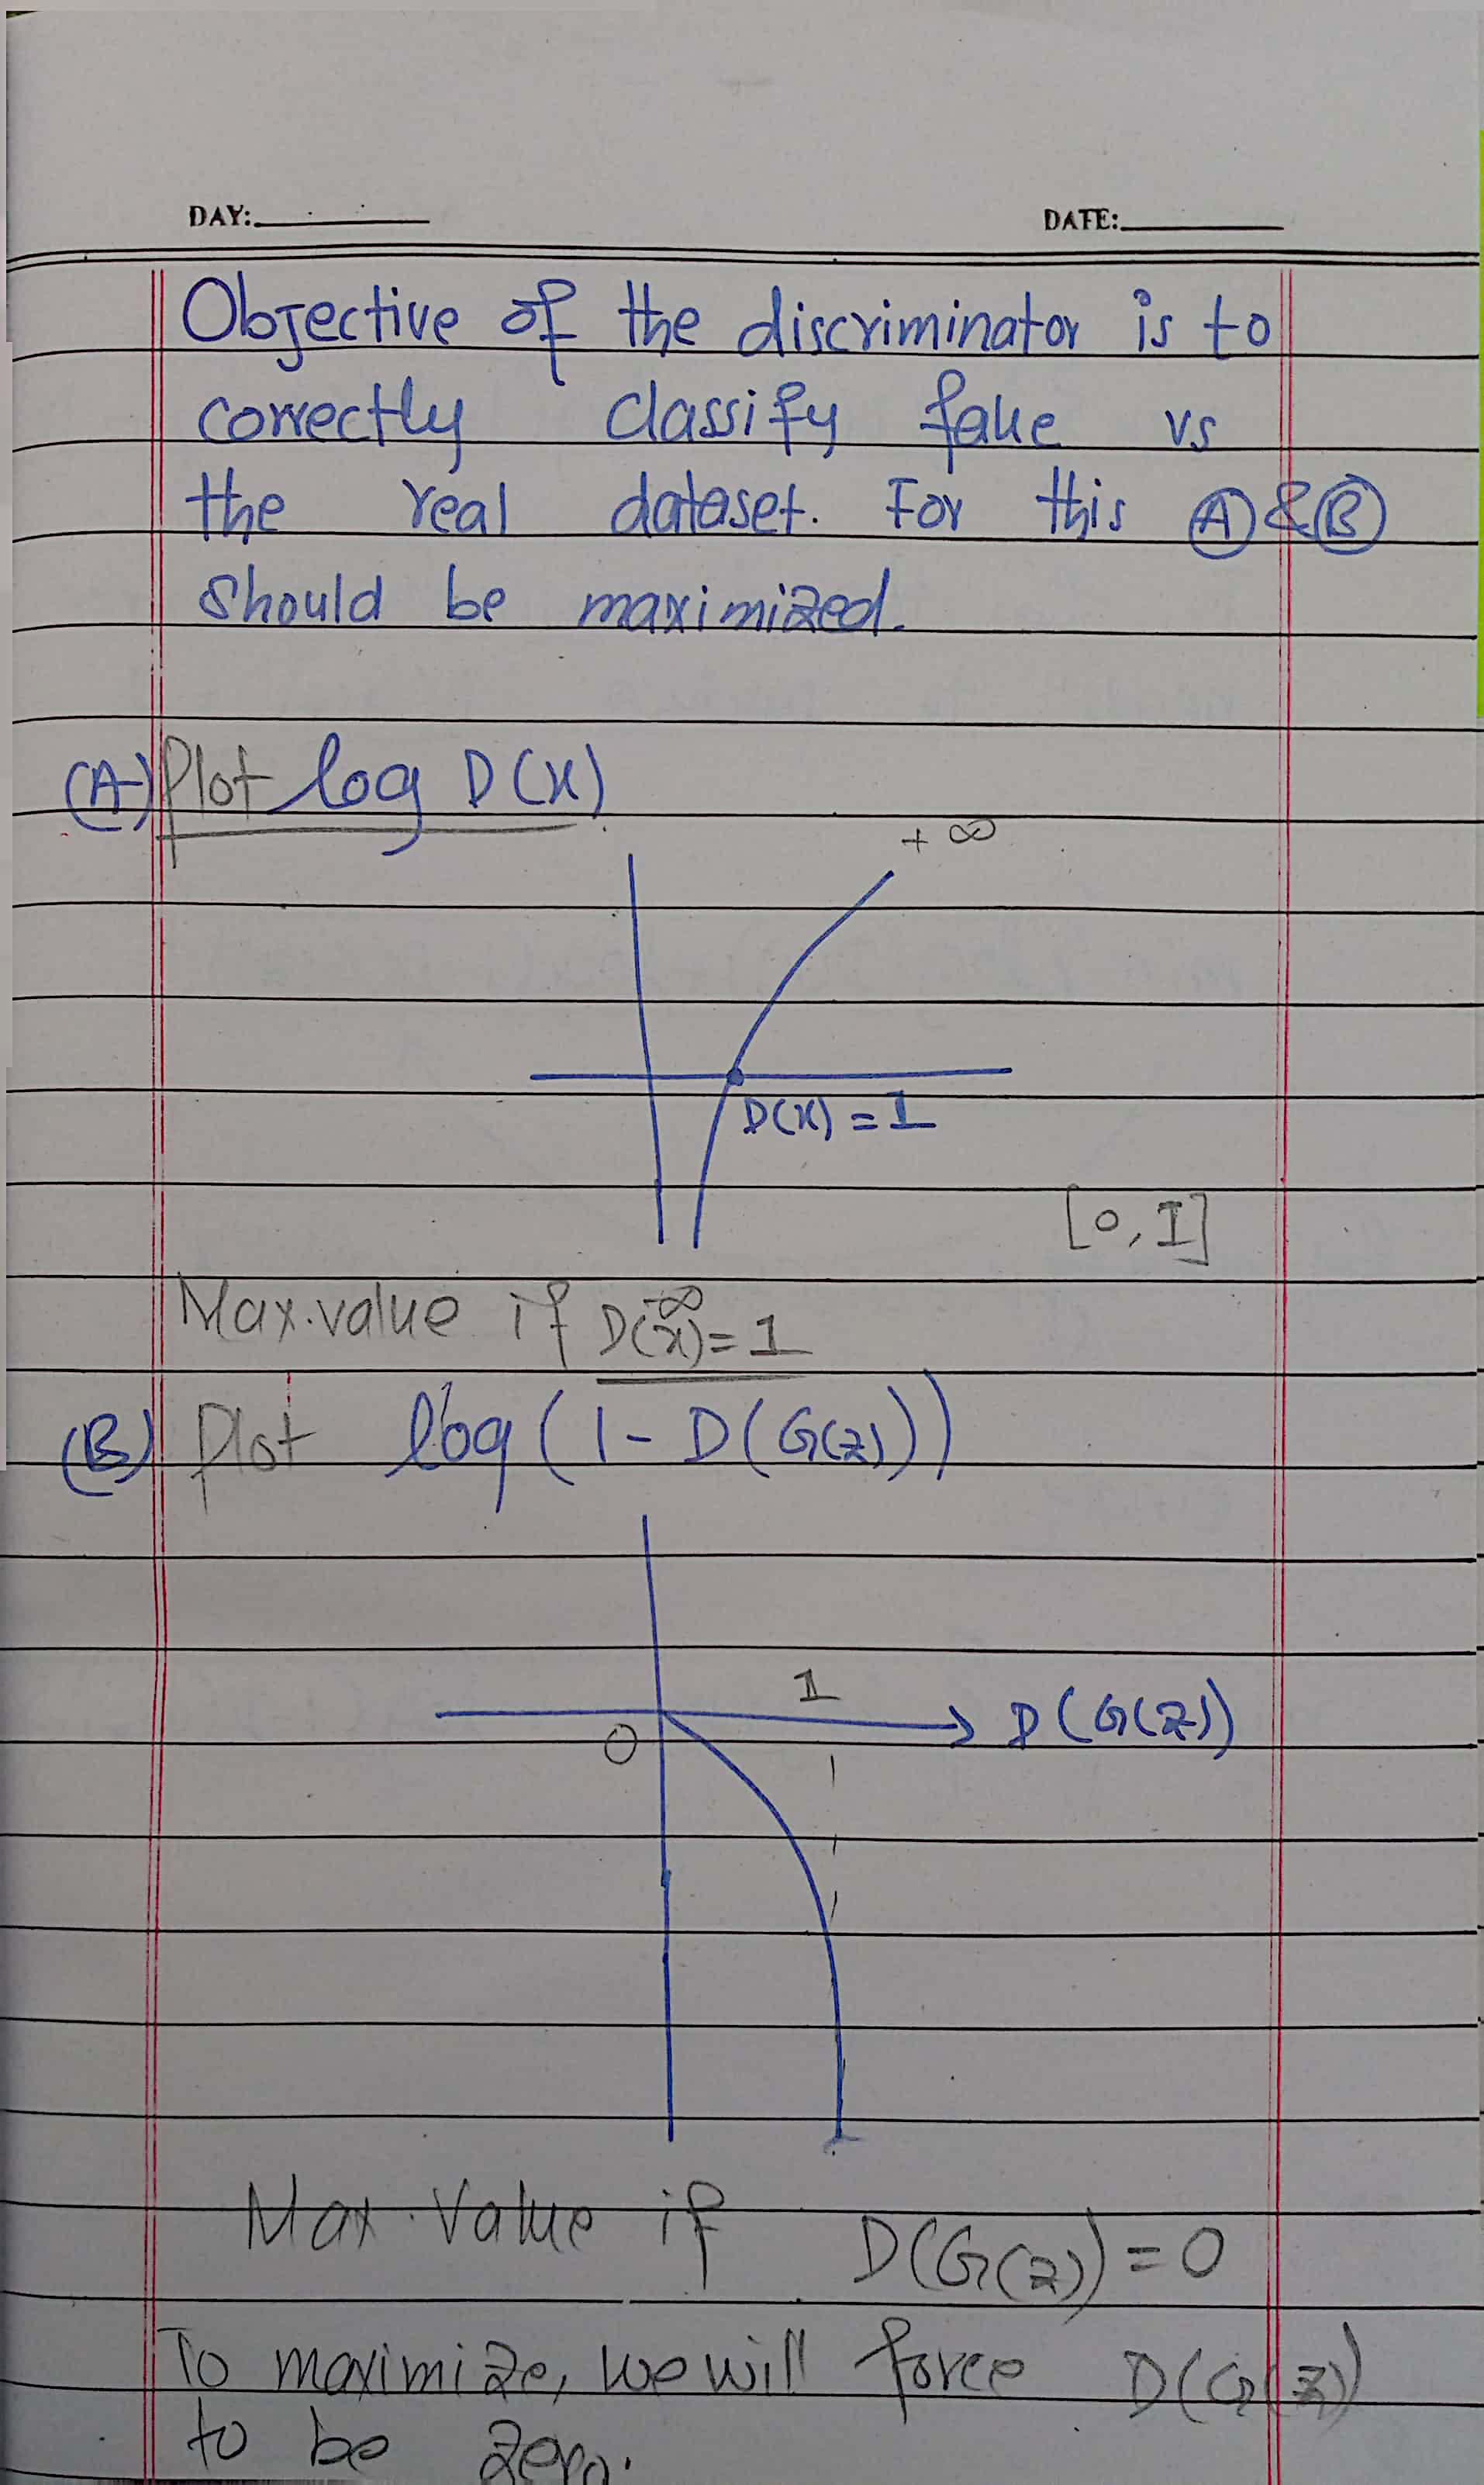 DAY: DATE:
Objective of the discriminator is to
correctly classify fake vs
the real dataset. For this (A) & (B)
should be maximized.
(A) Plot log D(x)
+ ∞
D(x) = 1
[0, 1]
-∞
Max. value if D(x) = 1
(B) Plot log (1 - D(G(z)))
1
D(G(z))
0
Max. Value if D(G(z)) = 0
To maximize, we will force D(G(z))
to be zero.